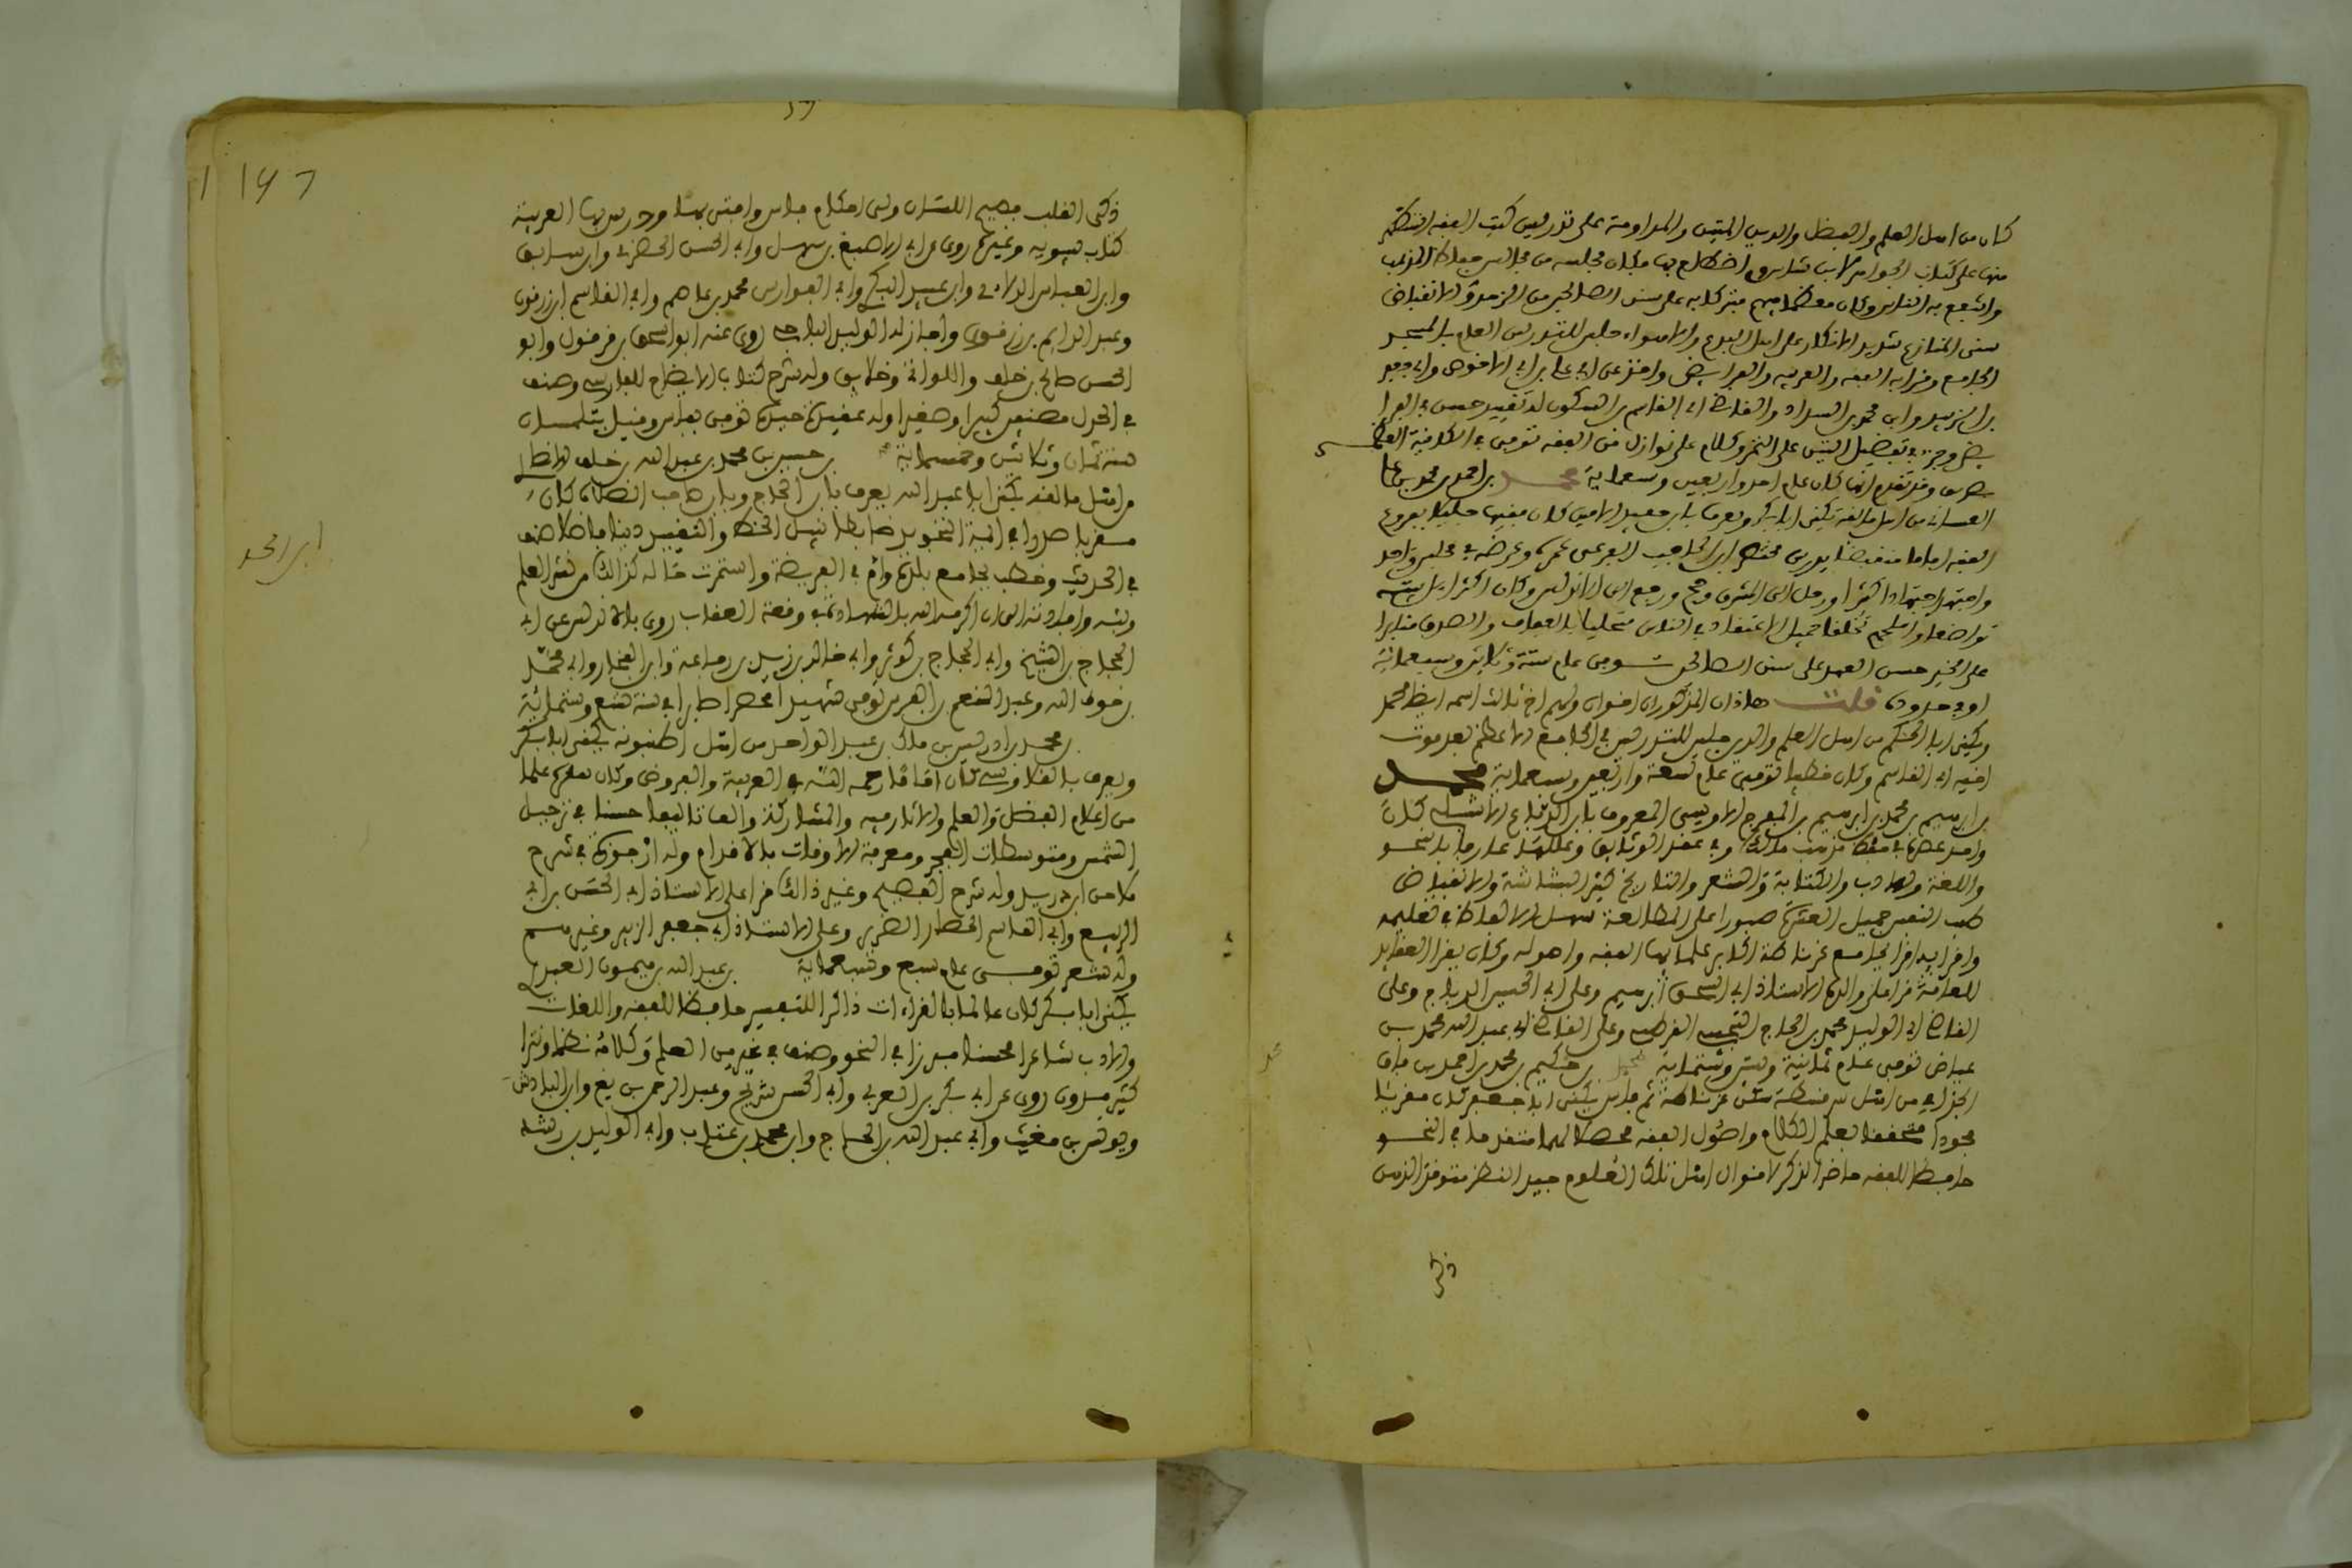 كان من اهل العلم والفضل والدين المتين والمداومة على تدريس كتب الفقه استظهر
منها على كتاب الجواهر لابن شاس واضطلع بها فكان مجلسه من مجالس حفاظ المذهب
وانتفع به الناس وكان معظما فيهم متبركا به على سنن الصالحين من الزهد والانقباض
سنى المنازع شديد الانكار على اهل البدع والاهواء جلس للتدريس العام بالمسجد
الجامع وقرا به الفقه والعربيه والفرايض واخذ عن ابي علي بن ابي الاحوص وابي جعفر
بن الزبير وابي محمد بن السداد والقاضي ابي القاسم بن السكوت له تقييد حسن في الفرا
يض وجزء في تفضيل التين على التمر وكلام على نوازل من الفقه توفي في الكائنة العظمى
بطريف وقد تقدم انها كانت عام احد واربعين وسبعماية محمد بن احمد بن محمد بن علي
الغساني من اهل مالقة يكنى ابا بكر ويعرف بابن حفيد الامين كان فقيها جليلا بفروع
الفقه اماما متفننا يدرس مختصر ابن الحاجب الفرعي عمره وعرضه في مجلس واحد
واجتهد اجتهادا كثيرا ورحل الى المشرق وحج ورجع الى الاندلس وكان اكثر اهل بيته
تواضعا واسلمهم تخلفا جميل الاعتقاد في الناس متحليا بالعفاف والصدق مثابرا
على الخير حسن العهد على سنن الصالحين توفي عام ستة وثلاثين وسبعماية
او في حدوده قلت هاذان المذكوران اخوان ولهم اخ ثالث اسمه ايضا محمد
ويكنى ابا الحكم من اهل العلم والدين جلس للتدريس في الجامع الاعظم بعد موت
اخيه ابي القاسم وكان خطيبا توفي عام تسعة واربعين وسبعماية محمد
بن ابراهيم بن محمد بن ابراهيم بن المفرج الاوسي المعروف بابن الدباغ الاشبيلي كان
واحد عصره في حفظ مذهب مالك وفي عقد الوثايق وعللها عارفا بالنحو
واللغة والادب والكتابة والشعر والتاريخ كثير البشاشة والانقباض
طيب النفس جميل العشرة صبورا على المطالعة سهل الالفاظ في تعليمه
واقرا به اقرا بجامع غرناطة اكابر علمايها الفقه واصوله وكان يقرا العقايد
للعامة قرا على والده الاستاذ ابي اسحق ابراهيم وعلى ابي الحسن الدباج وعلى
القاضي ابي الوليد محمد بن الحاج التجيبي القرطبي وعلى القاضي ابي عبد الله محمد بن
عياض توفي عام ثمانية وستين وستماية محمد بن حكيم بن محمد بن احمد بن باق
الجذامي من اهل سرقسطة سكن غرناطة ثم فاس يكنى ابا جعفر كان مقريا
مجودا محققا بعلم الكلام واصول الفقه محصلا لهما متقدما في النحو
حافظا للفقه حاضر الذكر لاقوال اهل تلك العلوم جيد النظر متوقد الذهن
ذكى
١٩٦
ذكى القلب فصيح اللسان ولي احكام فاس وافتى بها ودرس بها العربية
كتاب سيبويه وغيره روى عن ابي الاصبغ بن سهل وابي الحسن الحضرمي وابن سابق
وابي العباس الدلائي وابي عبيد البكري وابي الفوارس محمد بن عاصم وابي القاسم ابن زرقون
وعبد الدايم بن مرزوق واجاز له ابو الوليد الباجي روى عنه ابو اسحق بن فرقول وابو
الحسن صالح بن خلف واللواتي وخلايق وله شرح كتاب الايضاح للفارسي وصنف
في الجدل مصنفين كبيرا وصغيرا وله عقيدة جيدة توفي بفاس وقيل بتلمسان
سنة ثمان وثلاثين وخمسماية بن حسين بن محمد بن عبد الله بن خلف الانصاري
من اهل مالقه يكنى ابا عبد الله يعرف بابن الحاج وبابن صاحب الصلاة كان
مقريا صدرا في ايمة التجويد ضابطا نبيل الخط والتقييد دينا فاضلا صنف
في الحديث وخطب بجامع بلده وام في الفريضة واستمرت حاله كذالك من نشر العلم
وبثه وافادته الى ان اكرمه الله بالشهادة في وقعة العقاب روى بالاندلس عن ابي
الحجاج بن الشيخ وابي الحجاج بن كوثر وابي خالد بن يزيد بن رفاعة وابن الفخار وابي محمد
بن حوط الله وعبد المنعم بن الفرس توفي شهيدا محتسبا صابرا في سنة تسع وستماية
محمد بن ادريس بن مالك بن عبد الواحد من اهل اصطبونه يكنى ابا بكر
ويعرف بالقللوسي كان اماما رحمه الله في العربية والعروض وكان معه علما
من اعلام الفضل والعلم والايثار فيه والمشاركة والف تاليفا حسنا في ترحيل
الشمس ومتوسطات الفجر ومعرفة الاوقات بالاقدام وله ارجوزة في شرح
ملاحن ابن دريد وله شرح الفصيح وغير ذالك قرا على الاستاذ ابي الحسن بن ابي
الربيع وابي القاسم الحصار الضرير وعلى الاستاذ ابي جعفر بن الزبير وغيرهم
وله شعر توفي عام سبع وسبعماية بن عبد الله بن ميمون العبدري
يكنى ابا بكر كان عالما بالقراءات ذاكرا للتفسير حافظا للفقه واللغات
والادب شاعرا محسنا مبرزا في النحو وصنف في غير فن العلم وكلامه نظما ونثرا
كثير مدون روى عن ابي بكر بن العربي وابي الحسن شريح وعبد الرحمن بن بقي وابن الباذش
ويونس بن مغيث وابي عبد الله بن الحاج وابي محمد بن عتاب وابي الوليد بن رشد